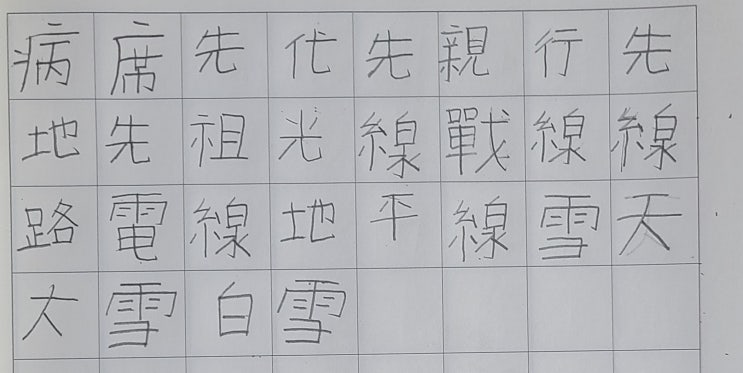 病席先代先親行先
地先祖光線戰線線
路電線地平線雪天
大雪白雪